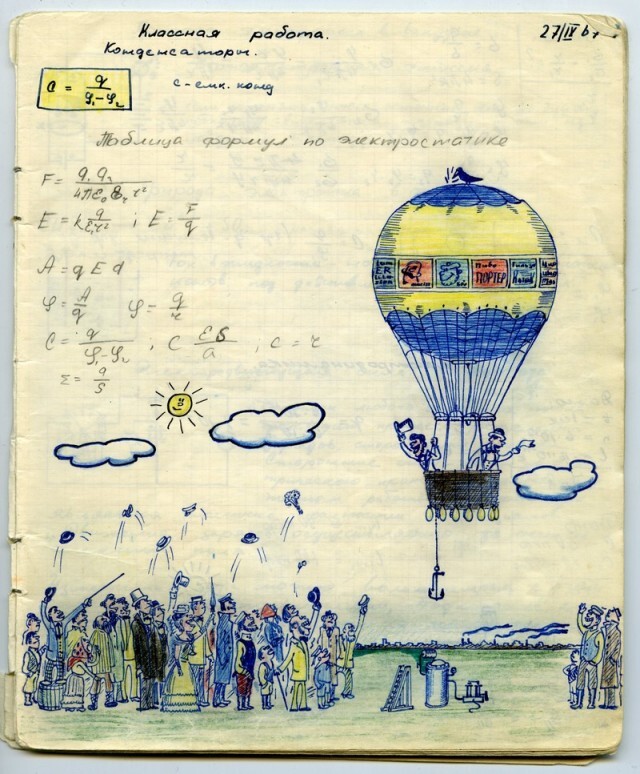 Классная работа.
27/IV 67
Конденсаторы.
C = q / φ₁-φ₂
c - емк. конд
Таблица формул по электростатике
F = q₁ q₂ / 4πε₀ε₁r²
E = k q / ε₁r² ; E = F / q
A = q E d
φ = A / q φ = q / r
C = q / φ₁-φ₂ ; C εS / d ; c = r
Σ = q / S
Пиво
ПОРТЕР